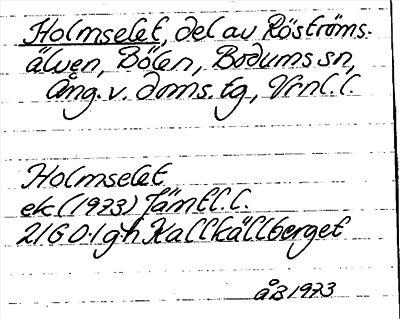 Holmselet, del av Röströms-
älven, Bölen, Bodums sn,
Ång. v. doms. tg, Vrnl. l.
Holmselet
ek (1973) Jämtl. l.
21G 0-1 g-h Kallkällberget
åB 1973